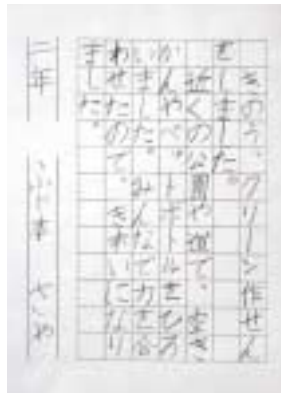 きのう、クリーン作せん
をしました。
近くの公園や道で、空き
かんやペットボトルをひろ
いました。みんなで力を合
わせたので、きれいになり
ました。
二年